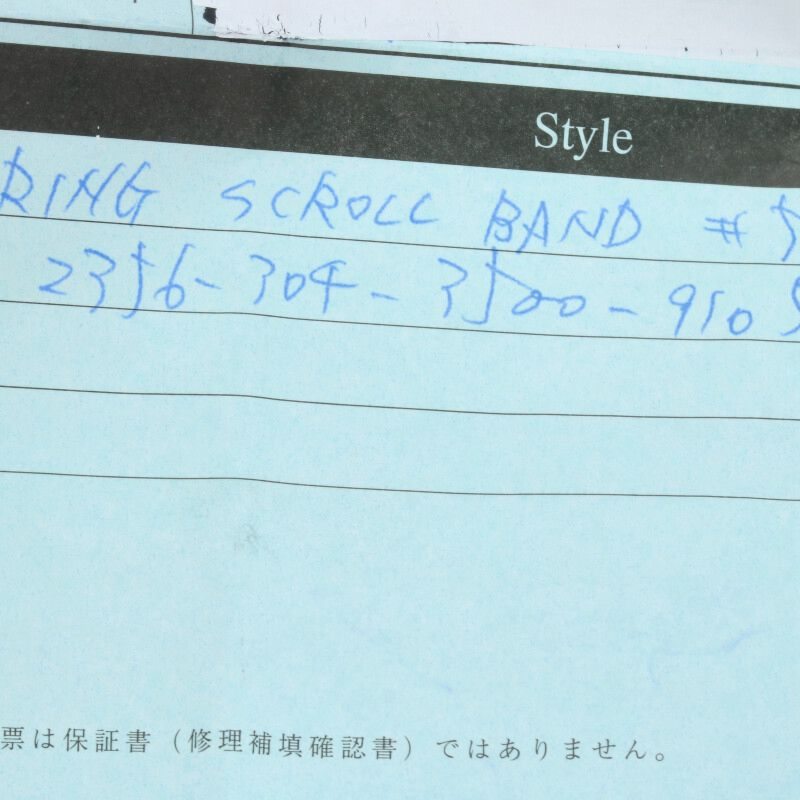 Style
RING SCROLL BAND #5
2356-304-3500-9105
票は保証書（修理補填確認書）ではありません。